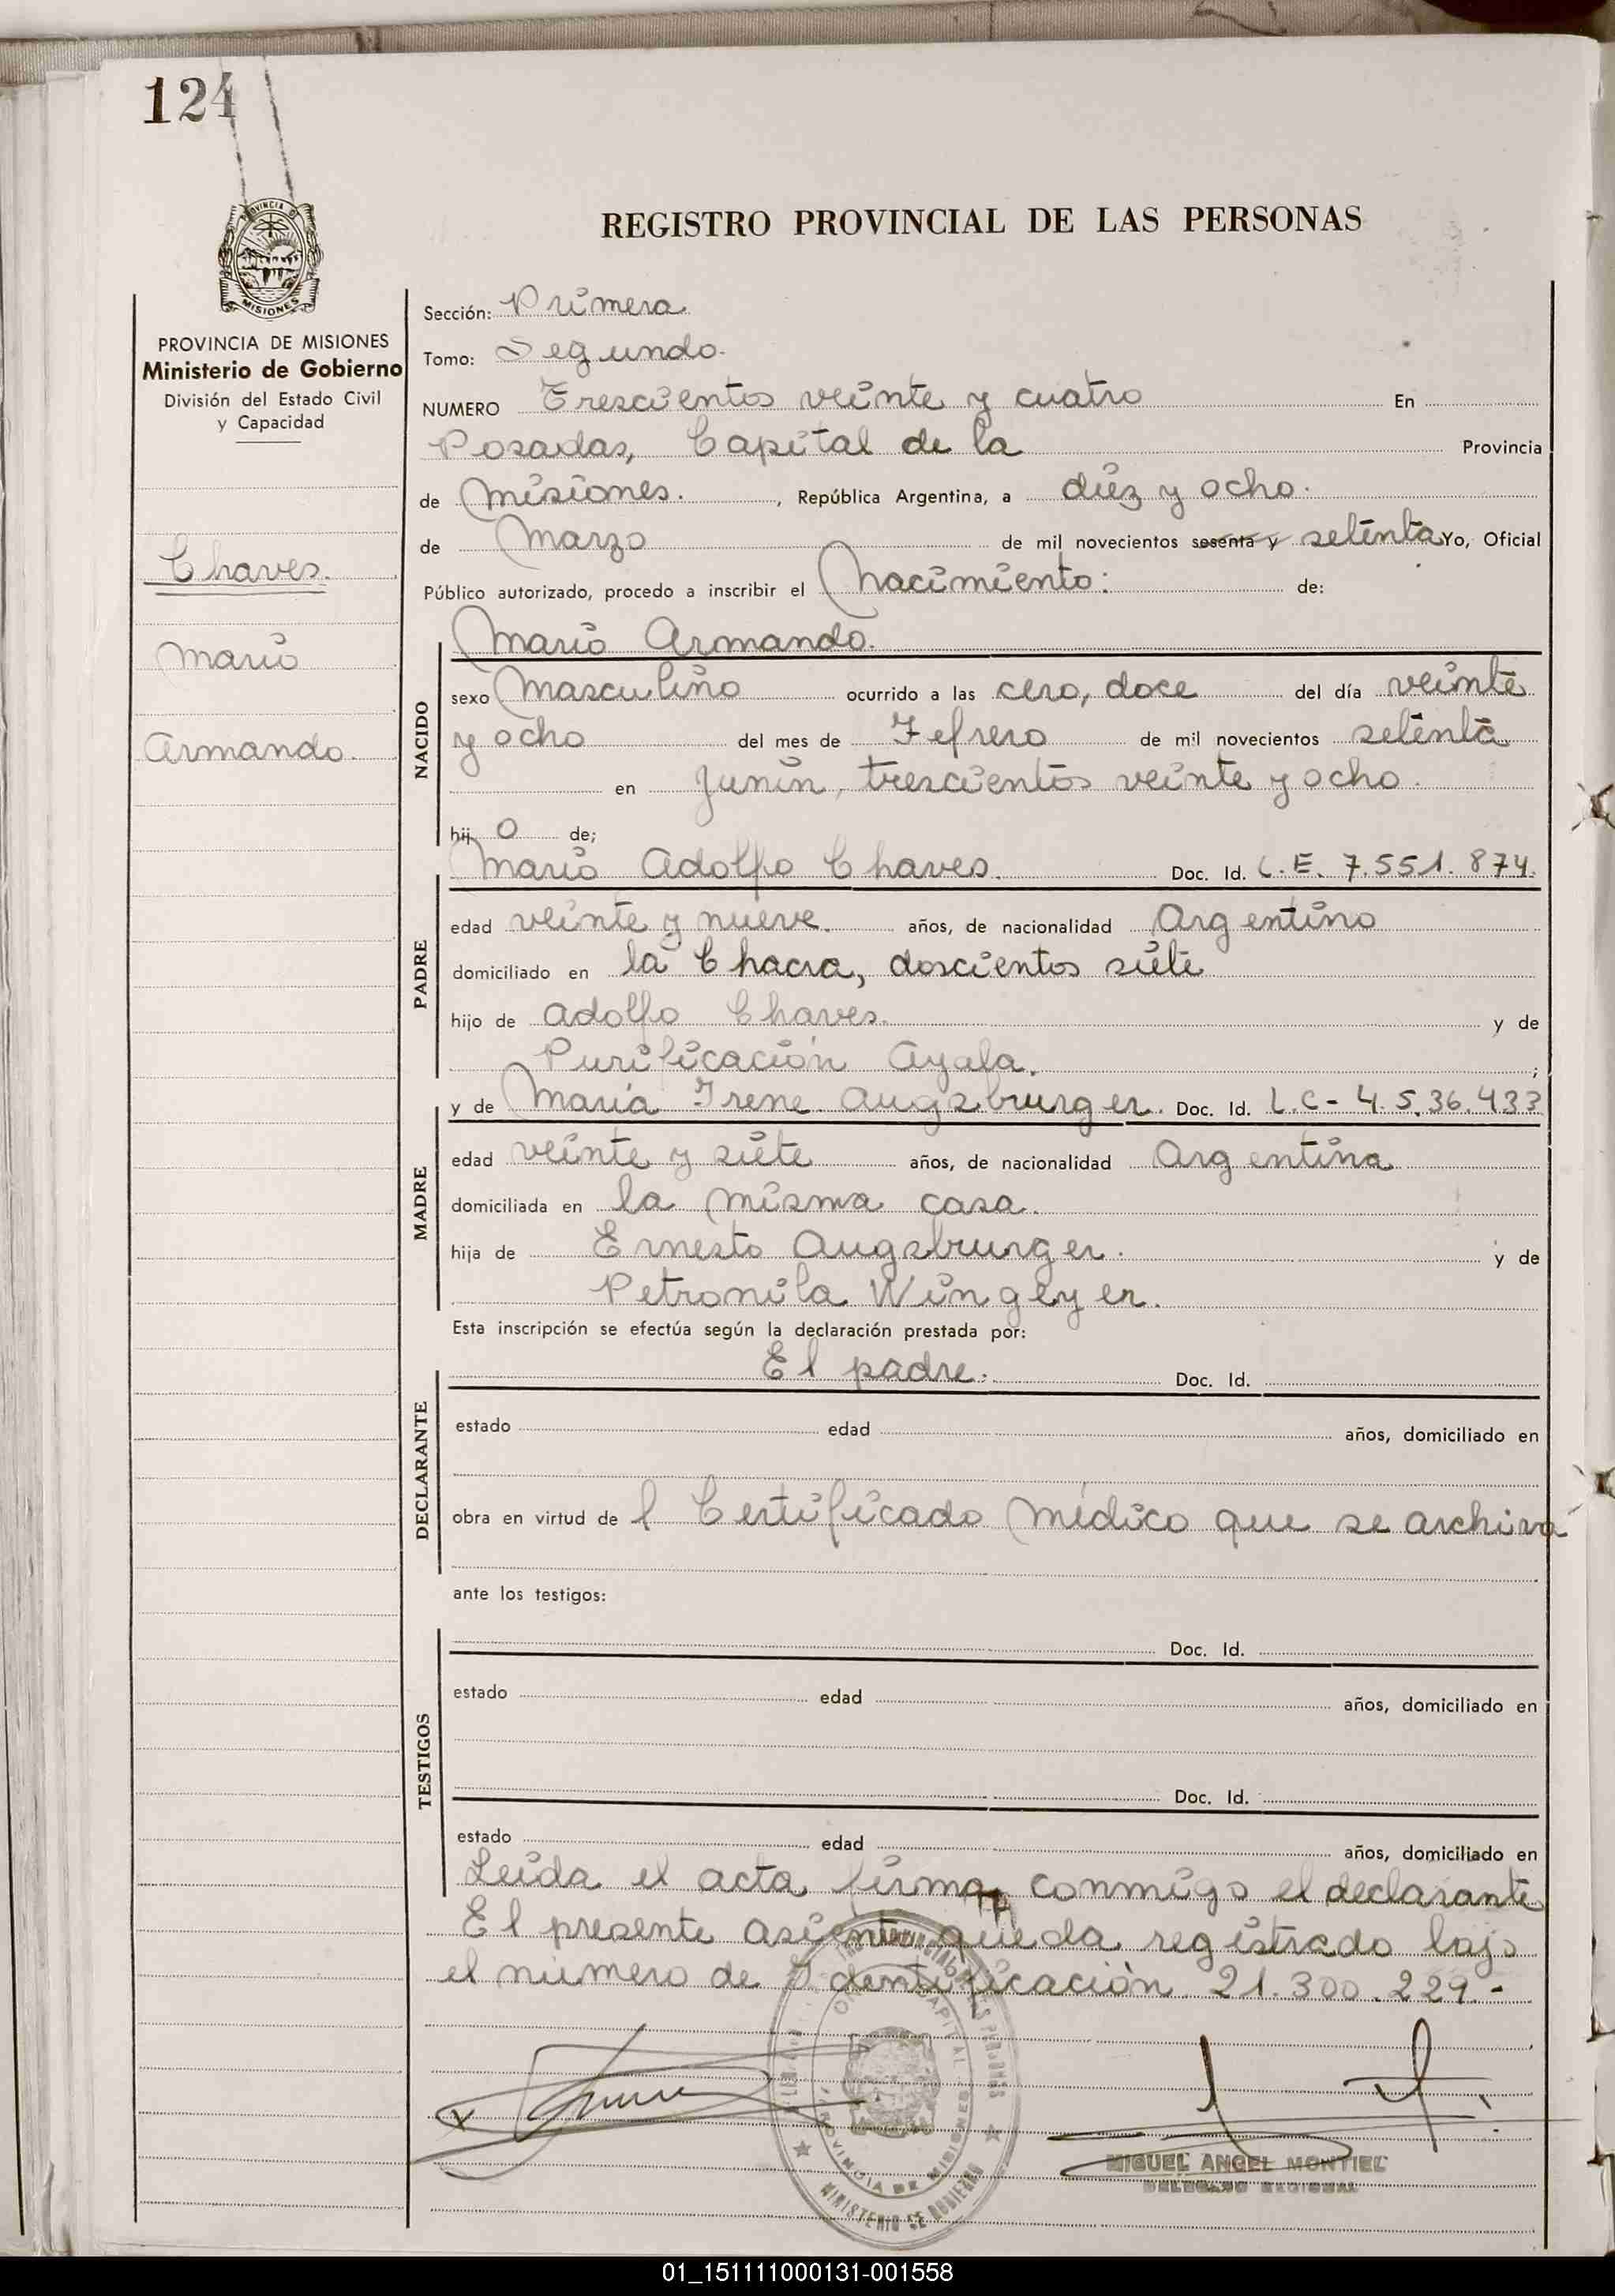 124
REGISTRO PROVINCIAL DE LAS PERSONAS
PROVINCIA DE
MISIONES
PROVINCIA DE MISIONES
Ministerio de Gobierno
División del Estado Civil
y Capacidad
Chaves.
Mario
Armando.
Sección: Primera
Tomo: Segundo.
NUMERO Trescientos veinte y cuatro En
Posadas, Capital de la Provincia
de Misiones. , República Argentina, a diez y ocho.
de Marzo de mil novecientos sesenta y setenta Yo, Oficial
Público autorizado, procedo a inscribir el Nacimiento: de:
Mario Armando.
NACIDO
sexo Masculino ocurrido a las cero, doce del día veinte
y ocho del mes de Febrero de mil novecientos setenta
en Junín, trescientos veinte y ocho.
hij o de;
Mario Adolfo Chaves. Doc. Id. L.E. 7.551.874.
PADRE
edad veinte y nueve. años, de nacionalidad Argentino
domiciliado en la Chacra, doscientos siete
hijo de Adolfo Chaves. y de
Purificación Ayala. ;
y de María Irene Augsburger. Doc. Id. L.C- 4.5.36.433
MADRE
edad veinte y siete años, de nacionalidad Argentina
domiciliada en la misma casa.
hija de Ernesto Augsburger. y de
Petronila Wingeyer.
Esta inscripción se efectúa según la declaración prestada por:
El padre. Doc. Id.
DECLARANTE
estado edad años, domiciliado en
obra en virtud de l Certificado Médico que se archiva
ante los testigos:
Doc. Id.
TESTIGOS
estado edad años, domiciliado en
Doc. Id.
estado edad años, domiciliado en
Leída el acta, firma conmigo el declarante
El presente asiento queda registrado bajo
el número de Identificación 21.300.229.-
CAPITAL
PROVINCIA DE MISIONES
MINISTERIO DE GOBIERNO
MIGUEL ANGEL MONTIEL
DELEGADO REGIONAL
01_151111000131-001558